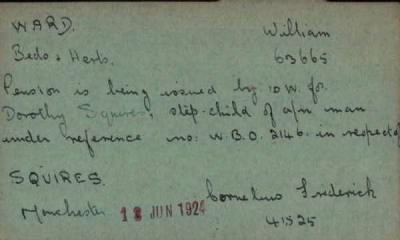 WARD. William
Beds & Herts. 63665
Pension is being issued by 10 W. for
Dorothy Squires, step-child of a/n man
under reference no: W.B.O. 2146 in respect of
SQUIRES. Cornelius Frederick
Manchester 18 JUN 1924 41525